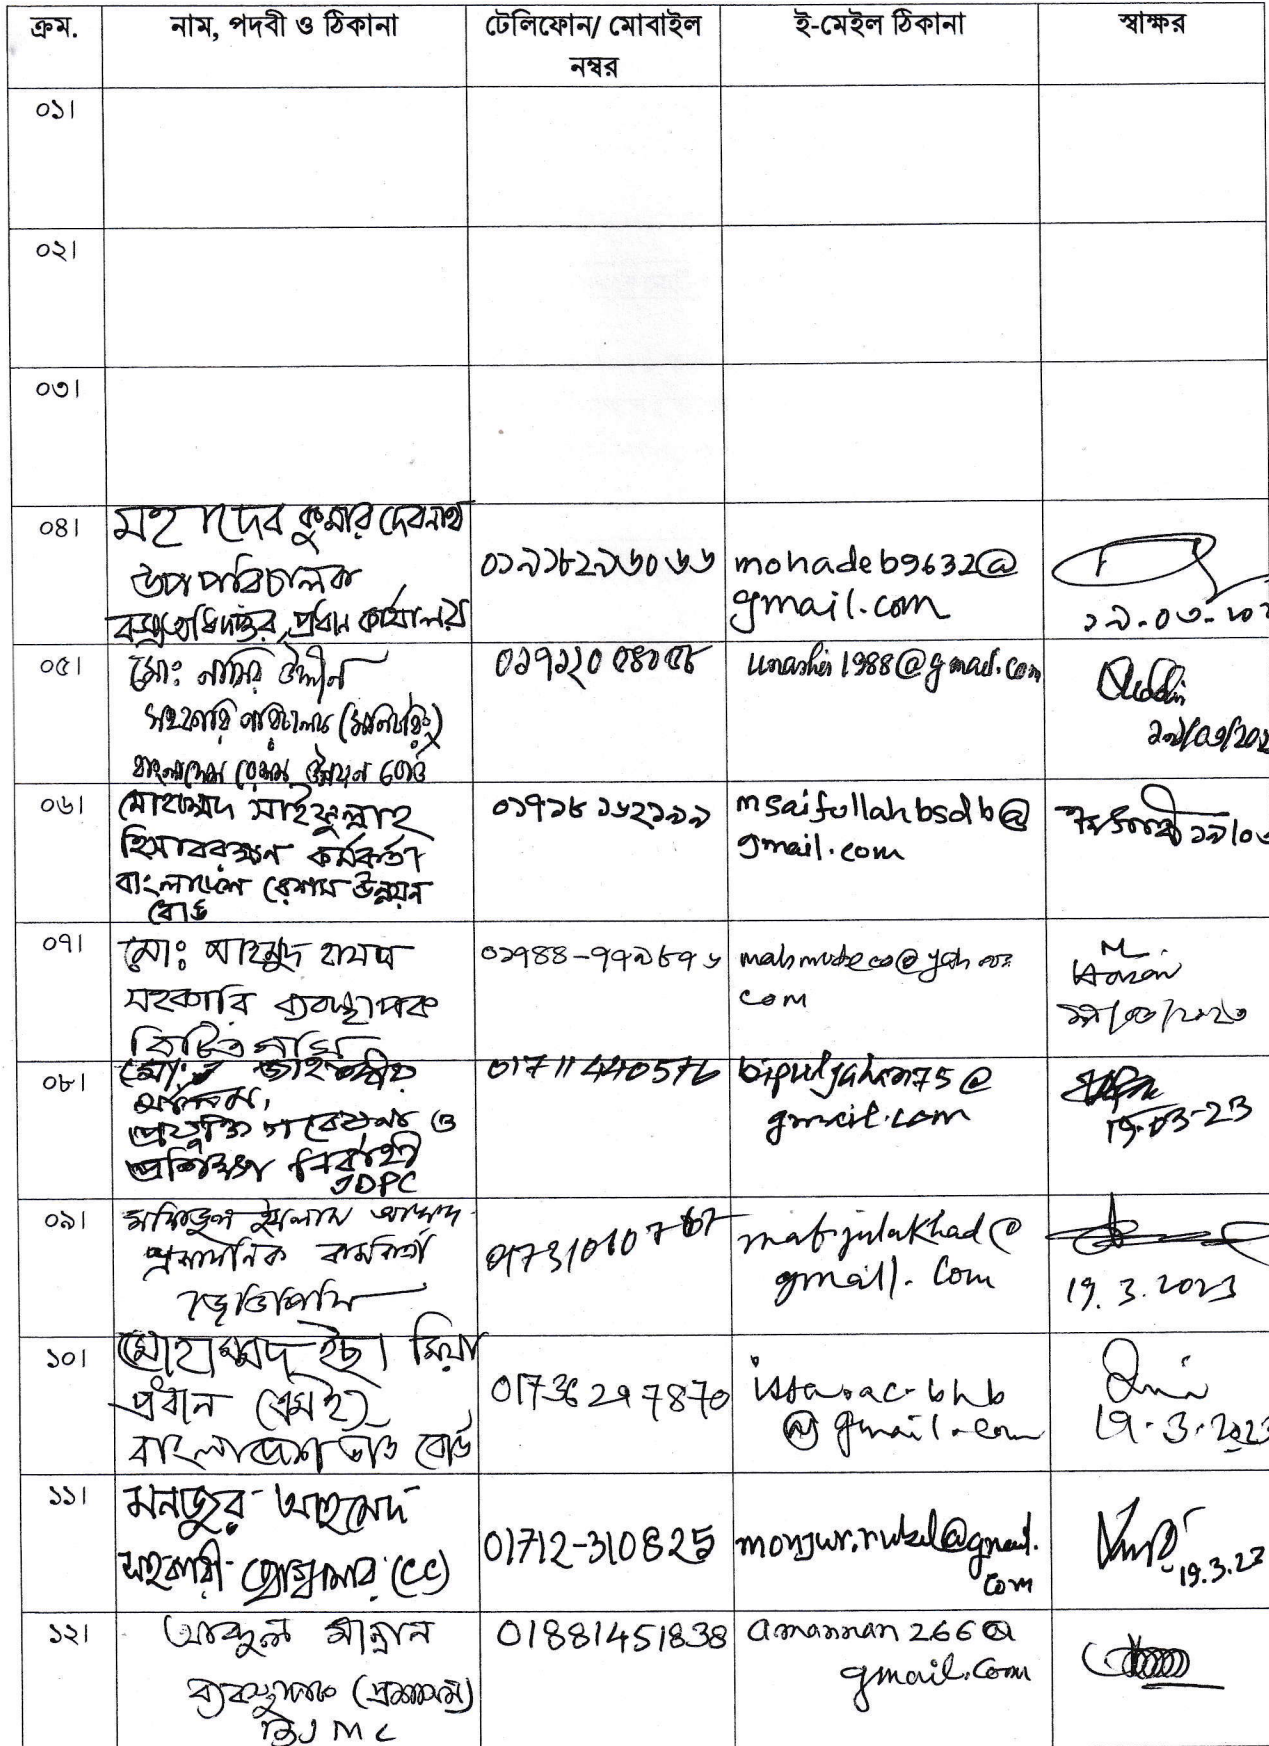 ক্রম.
নাম, পদবী ও ঠিকানা
টেলিফোন/ মোবাইল
নম্বর
ই-মেইল ঠিকানা
স্বাক্ষর
০১।
০২।
০৩।
০৪।
মহাদেব কুমার দেবনাথ
উপপরিচালক
বস্ত্র অধিদপ্তর, প্রধান কার্যালয়
mohadeb9632@
gmail.com
০৫।
মোঃ নাসির উদ্দীন
সহকারি পরিচালক (মনিটরিং)
বাংলাদেশ রেশম উন্নয়ন বোর্ড
unashir1988@gmail.com
০৬।
মোহাম্মদ সাইফুল্লাহ
হিসাবরক্ষণ কর্মকর্তা
বাংলাদেশ রেশম উন্নয়ন
বোর্ড
০১৭১৮১৬২১৯৯
msaifullahbsdb@
gmail.com
১৯/০৩
০৭।
মোঃ মাহমুদ হাসান
সহকারি ব্যবস্থাপক
com
০৮।
মোঃ জাহাঙ্গীর
আলম,
প্রযুক্তি গবেষণা ও
প্রশিক্ষণ নির্বাহী
JDPC
01711440576
bipuljahan75@
gmail.com
19-03-23
০৯।
মফিজুল ইসলাম আখন্দ
প্রশাসনিক কর্মকর্তা
জেডিপিসি
mafijulakhad@
gmail.com
19.3.2023
১০।
মোহাম্মদ ইছা মিয়া
প্রধান (এমই)
বাংলাদেশ তাঁত বোর্ড
01736297870
@gmail.com
19.3.2023
১১।
মনজুর আহমেদ
সহকারী প্রোগ্রামার (CC)
01712-310825
monjur.rubel@gmail.
com
19.3.23
১২।
আব্দুল মান্নান
ব্যবস্থাপক (প্রশাসন)
BJMC
01881451838
amannan266@
gmail.com